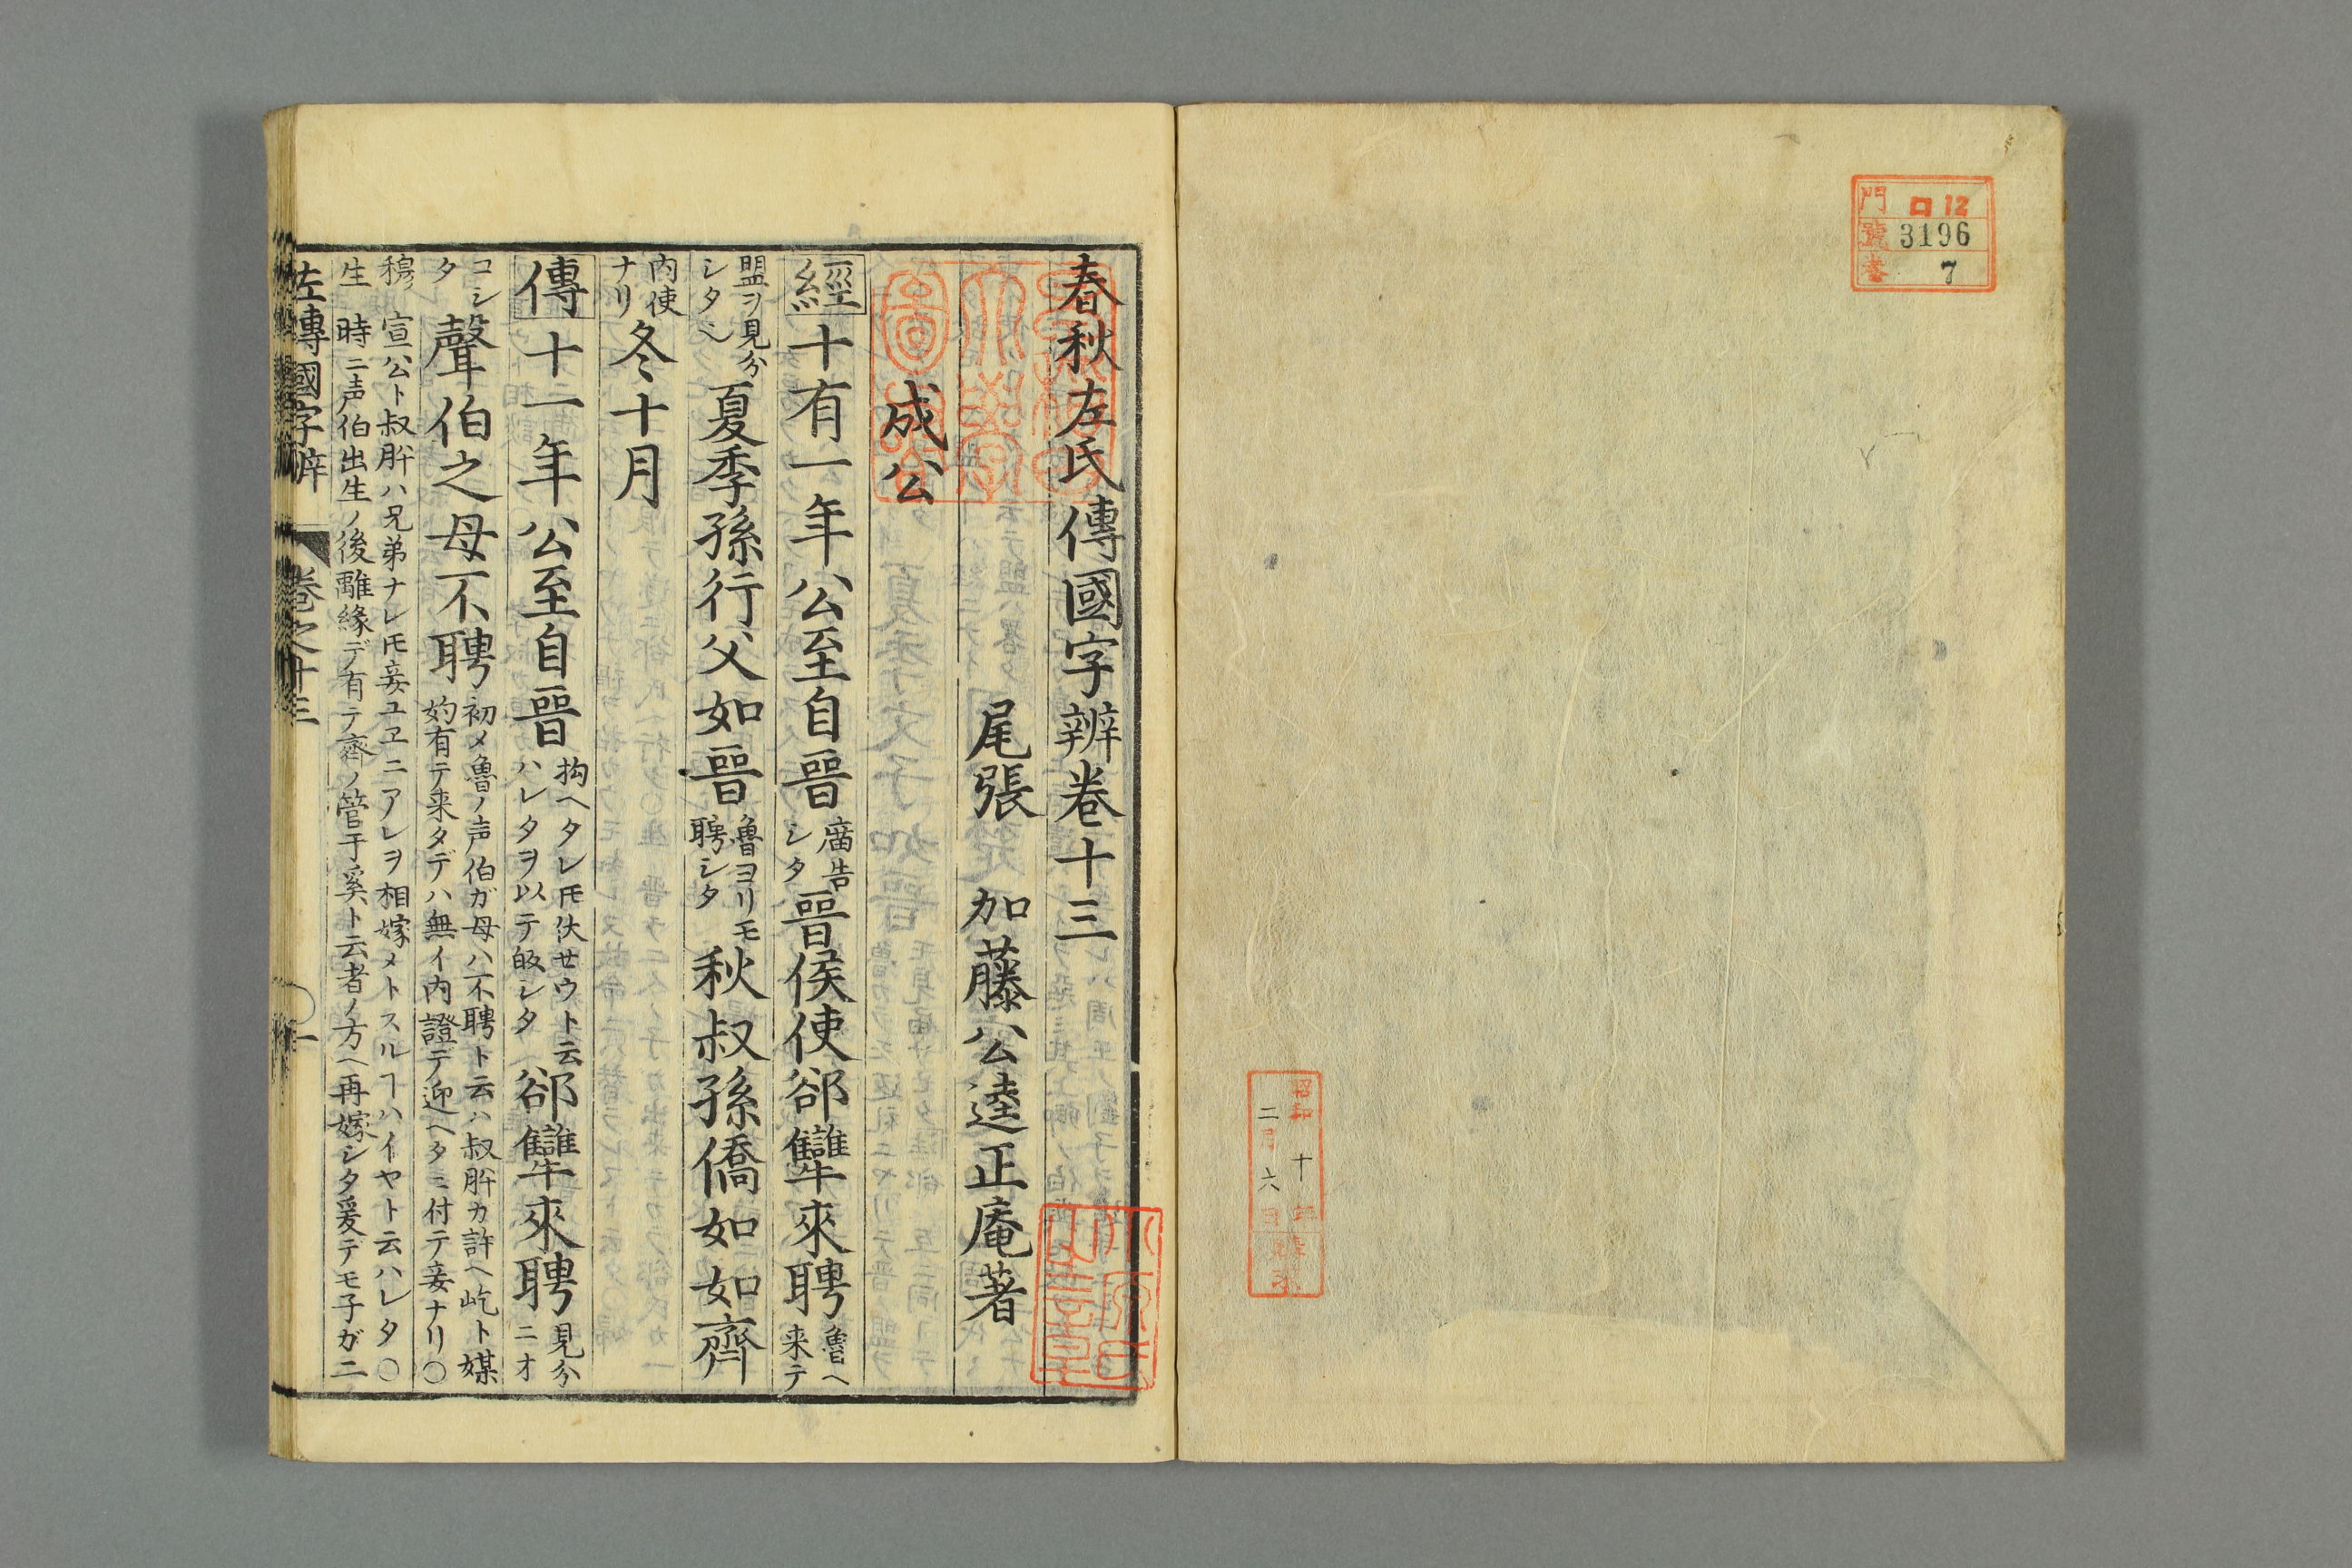 門 ロ12
號 3196
巻 7
昭和十年
二月六日
春秋左氏傳國字辨卷十三
尾張 加藤公逵正庵著
成公
經十有一年公至自晉
廣告
シタ
晉侯使郤犨來聘
魯ヘ
来テ
盟ヲ見分
シタベ
夏季孫行父如晉
魯ヨリモ
聘シタ
秋叔孫僑如如齊
内使
ナリ
冬十月
傳十一年公至自晉
拘ヘタレ𪜈伏せウト云
ハレタヲ以テ皈シタ
郤犨來聘
見分
ニオ
コシ
タ
聲伯之母不聘
初メ魯ノ声伯ガ母ハ不聘ト云ハ叔肸カ許ヘ屹ト媒
妁有テ来タデハ無イ内證デ迎ヘタニ付テ妾ナリ〇
穆
生
宣公ト叔肸ハ兄弟ナレ𪜈妾ユヱニアレヲ相嫁メトスルヿハイヤト云ハレタ〇
時ニ声伯出生ノ後離緣デ有テ齊ノ管于奚ト云者ノ方ヘ再嫁シタ爰デモ子ガ二
左傳國字辨 卷之十三 〇一